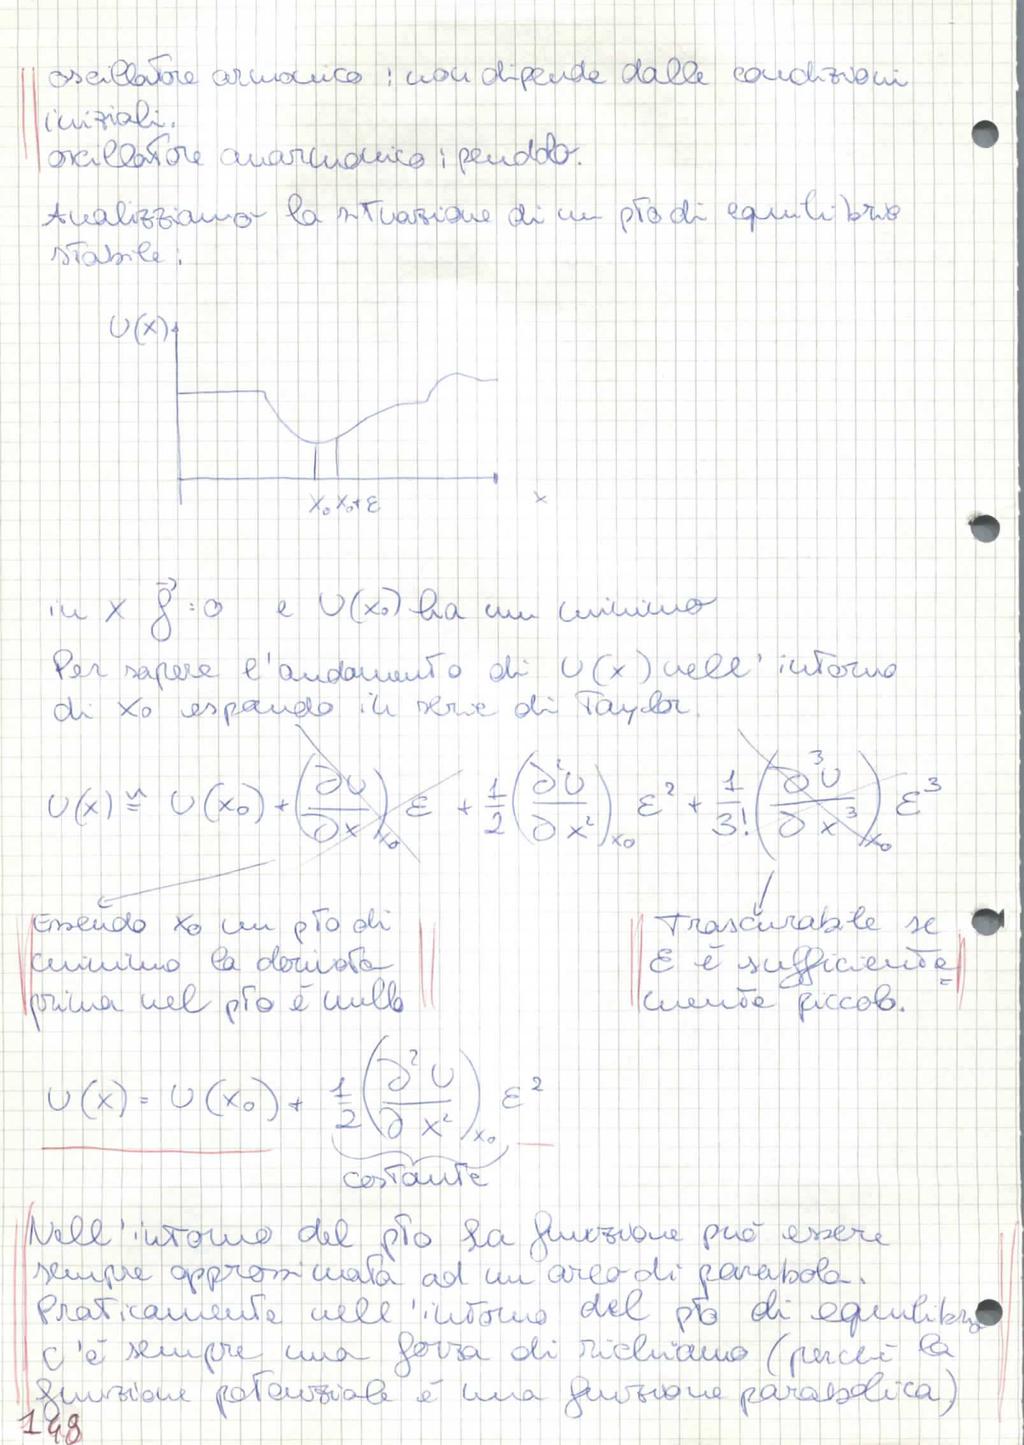 oscillatore armonico : non dipende dalle condizioni
iniziali.
oscillatore anarmonico : pendolo.
Analizziamo la situazione di un pto di equilibrio
stabile :
U(x)
x₀ x₀+ε x
in x f⃗ = 0 e U(x₀) ha un minimo
Per sapere l'andamento di U(x) nell'intorno
di x₀ espando in serie di Taylor.
U(x) ≅ U(x₀) + (∂U/∂x)x₀ ε + 1/2 (∂²U/∂x²)x₀ ε² + 1/3! (∂³U/∂x³)x₀ ε³
Essendo x₀ un pto di
minimo la derivata
prima nel pto è nulla
Trascurabile se
ε è sufficiente=
mente piccolo.
U(x) = U(x₀) + 1/2 (∂²U/∂x²)x₀ ε²
costante
Nell'intorno del pto la funzione può essere
sempre approssimata ad un arco di parabola.
Praticamente nell'intorno del pto di equilibrio
c'è sempre una forza di richiamo (perchè la
funzione potenziale è una funzione parabolica)
148